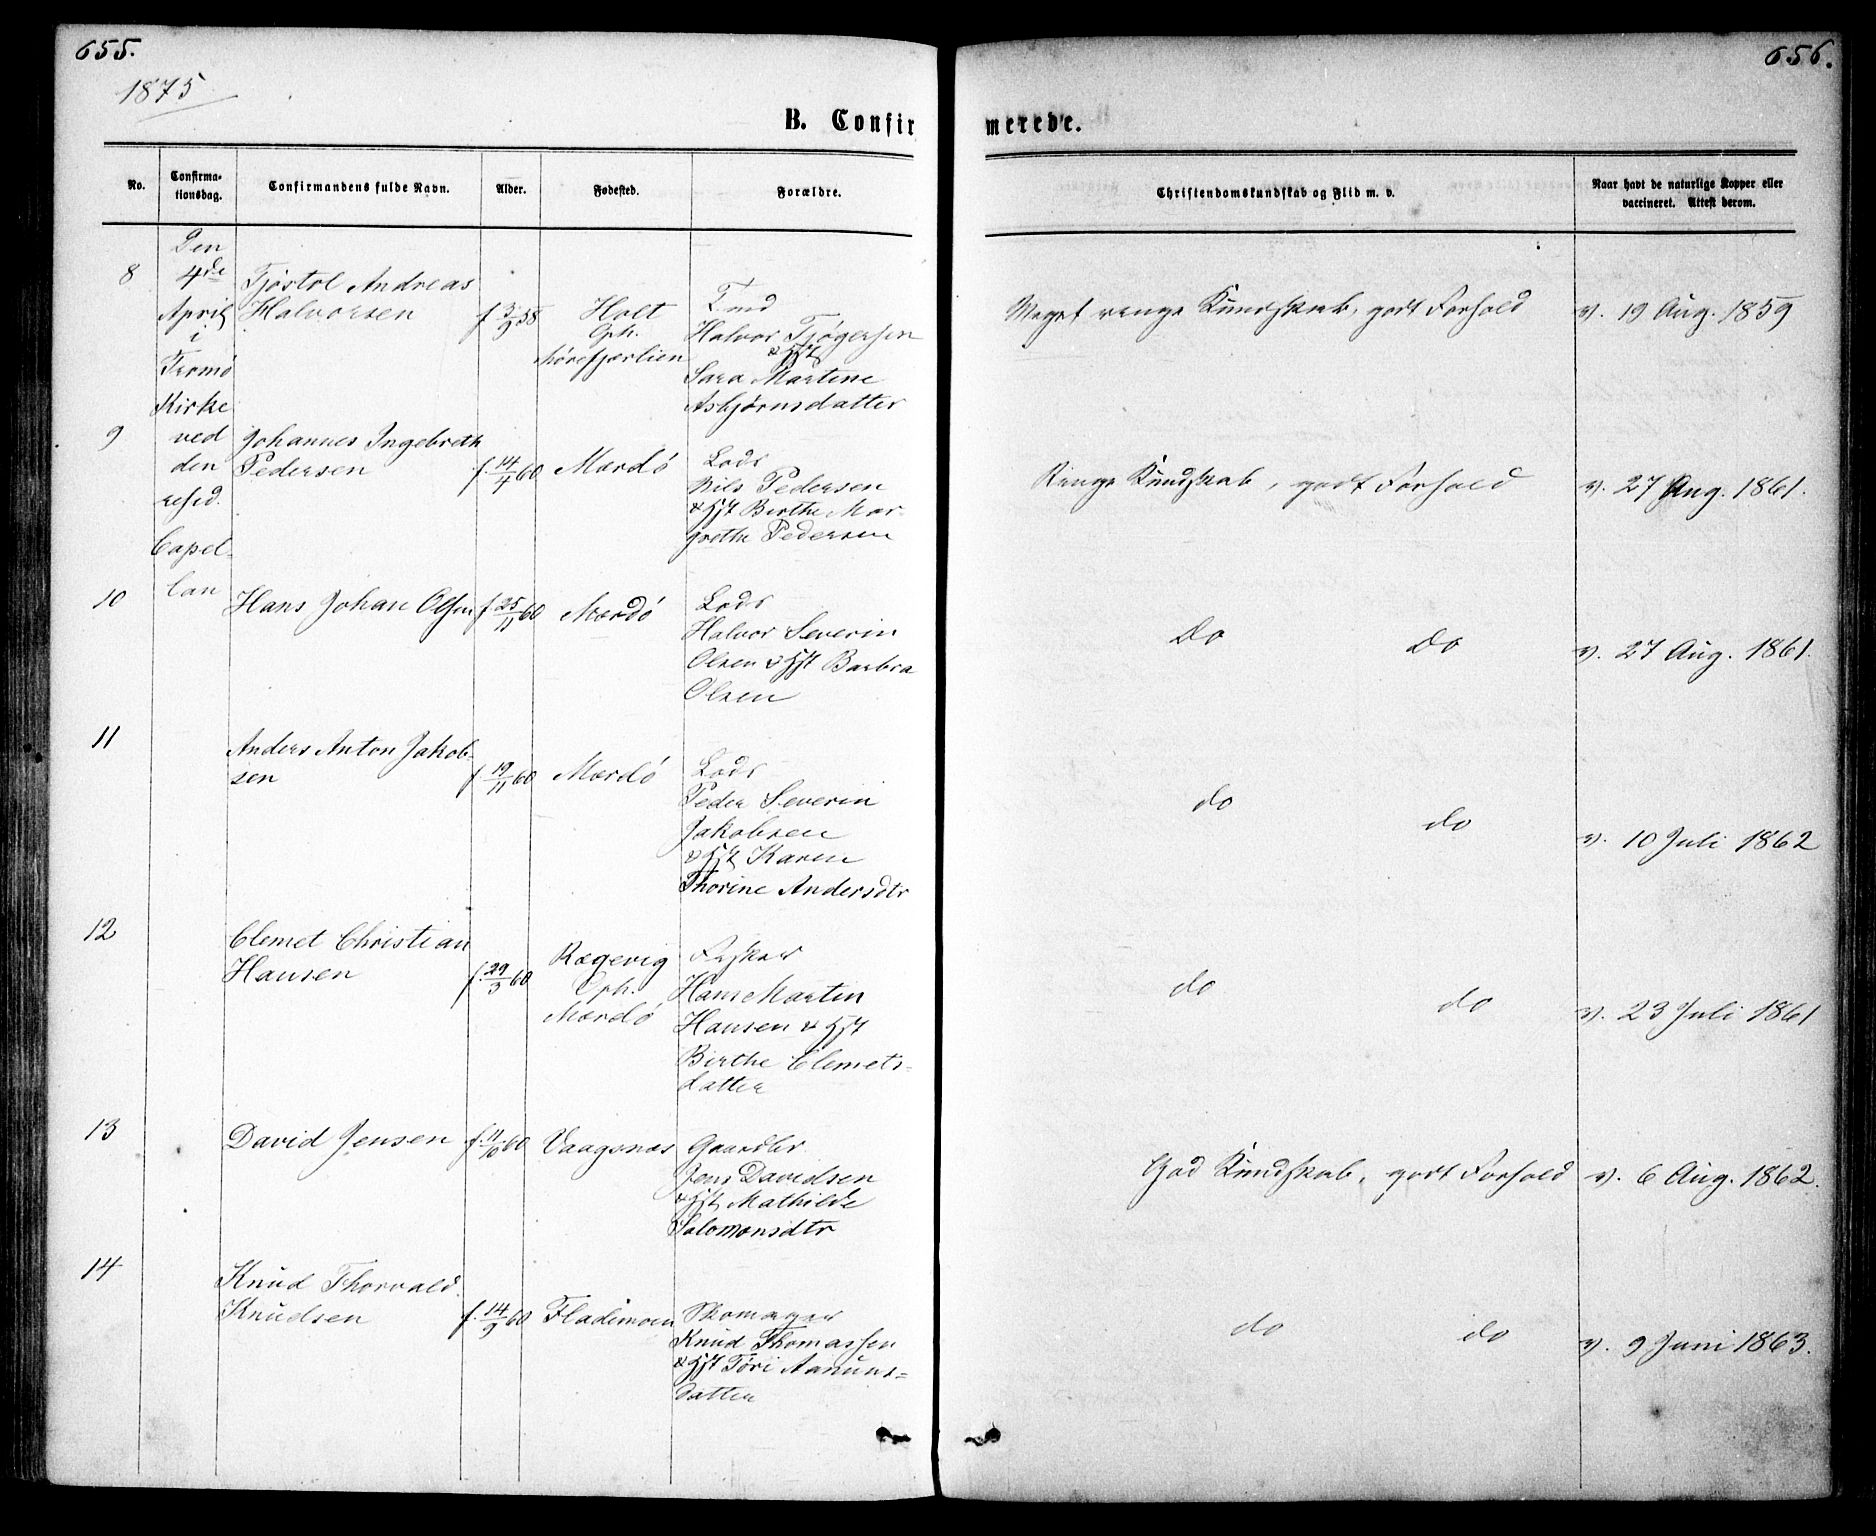 655.
656.
1875
B. Confirmerede.
No.
Confirma-
tionsdag.
Confirmandens fulde Navn.
Alder.
Fødested.
Forældre.
Christendomskundskab og Flid m. v.
Naar havt de naturlige Kopper eller
vaccineret. Attest derom.
Den
4de
April
i
Tromø
Kirke
ved
den
resid.
Capel-
lan
8
Tjøstol Andreas
Halvorsen
f 3/9 58
Holt
Oph.
Halvor Tjøgersen
& Hst
Sara Martine
Asbjørnsdatter
Meget ringe Kundskab, godt Forhold
v. 19 Aug. 1859
9
Johannes Ingebreth
Pedersen
f. 14/4 60
Mærdö
Lods
Nils Pedersen
& Hst Birthe Mar-
grethe Pedersen
Ringe Kundskab, godt Forhold
v. 27 Aug. 1861.
10
Hans Johan Olsen
f 25/11 60
Mærdö
Lods
Halvor Severin
Olsen & Hst Barbra
Olsen
Do Do
v. 27 Aug. 1861.
11
Anders Anton Jakob-
sen
f 19/11 60
Mærdö
Lods
Peder Severin
Jakobsen
& Hst Karen
Thorine Andersdtr
do do
v. 10 Juli 1862
12
Clemet Christian
Hansen
f. 29/3 60
Rægevig
Oph.
Mærdö
Fisker
Hans Martin
Hansen & Hst
Birthe Clemets-
datter
do do
v. 23 Juli 1861
13
David Jensen
f. 11/10 60
Vaagsnæs
Gaardbr
Jens Davidsen
& Hst Mathilde
Salomonsdtr
God Kundskab, godt Forhold
v. 6 Aug. 1862.
14
Knud Thorvald
Knudsen
f. 14/9 60
Fladimoen
Skomager
Knud Thomassen
& Hst Töri Aanuns-
datter
do do
v. 9 Juni 1863.